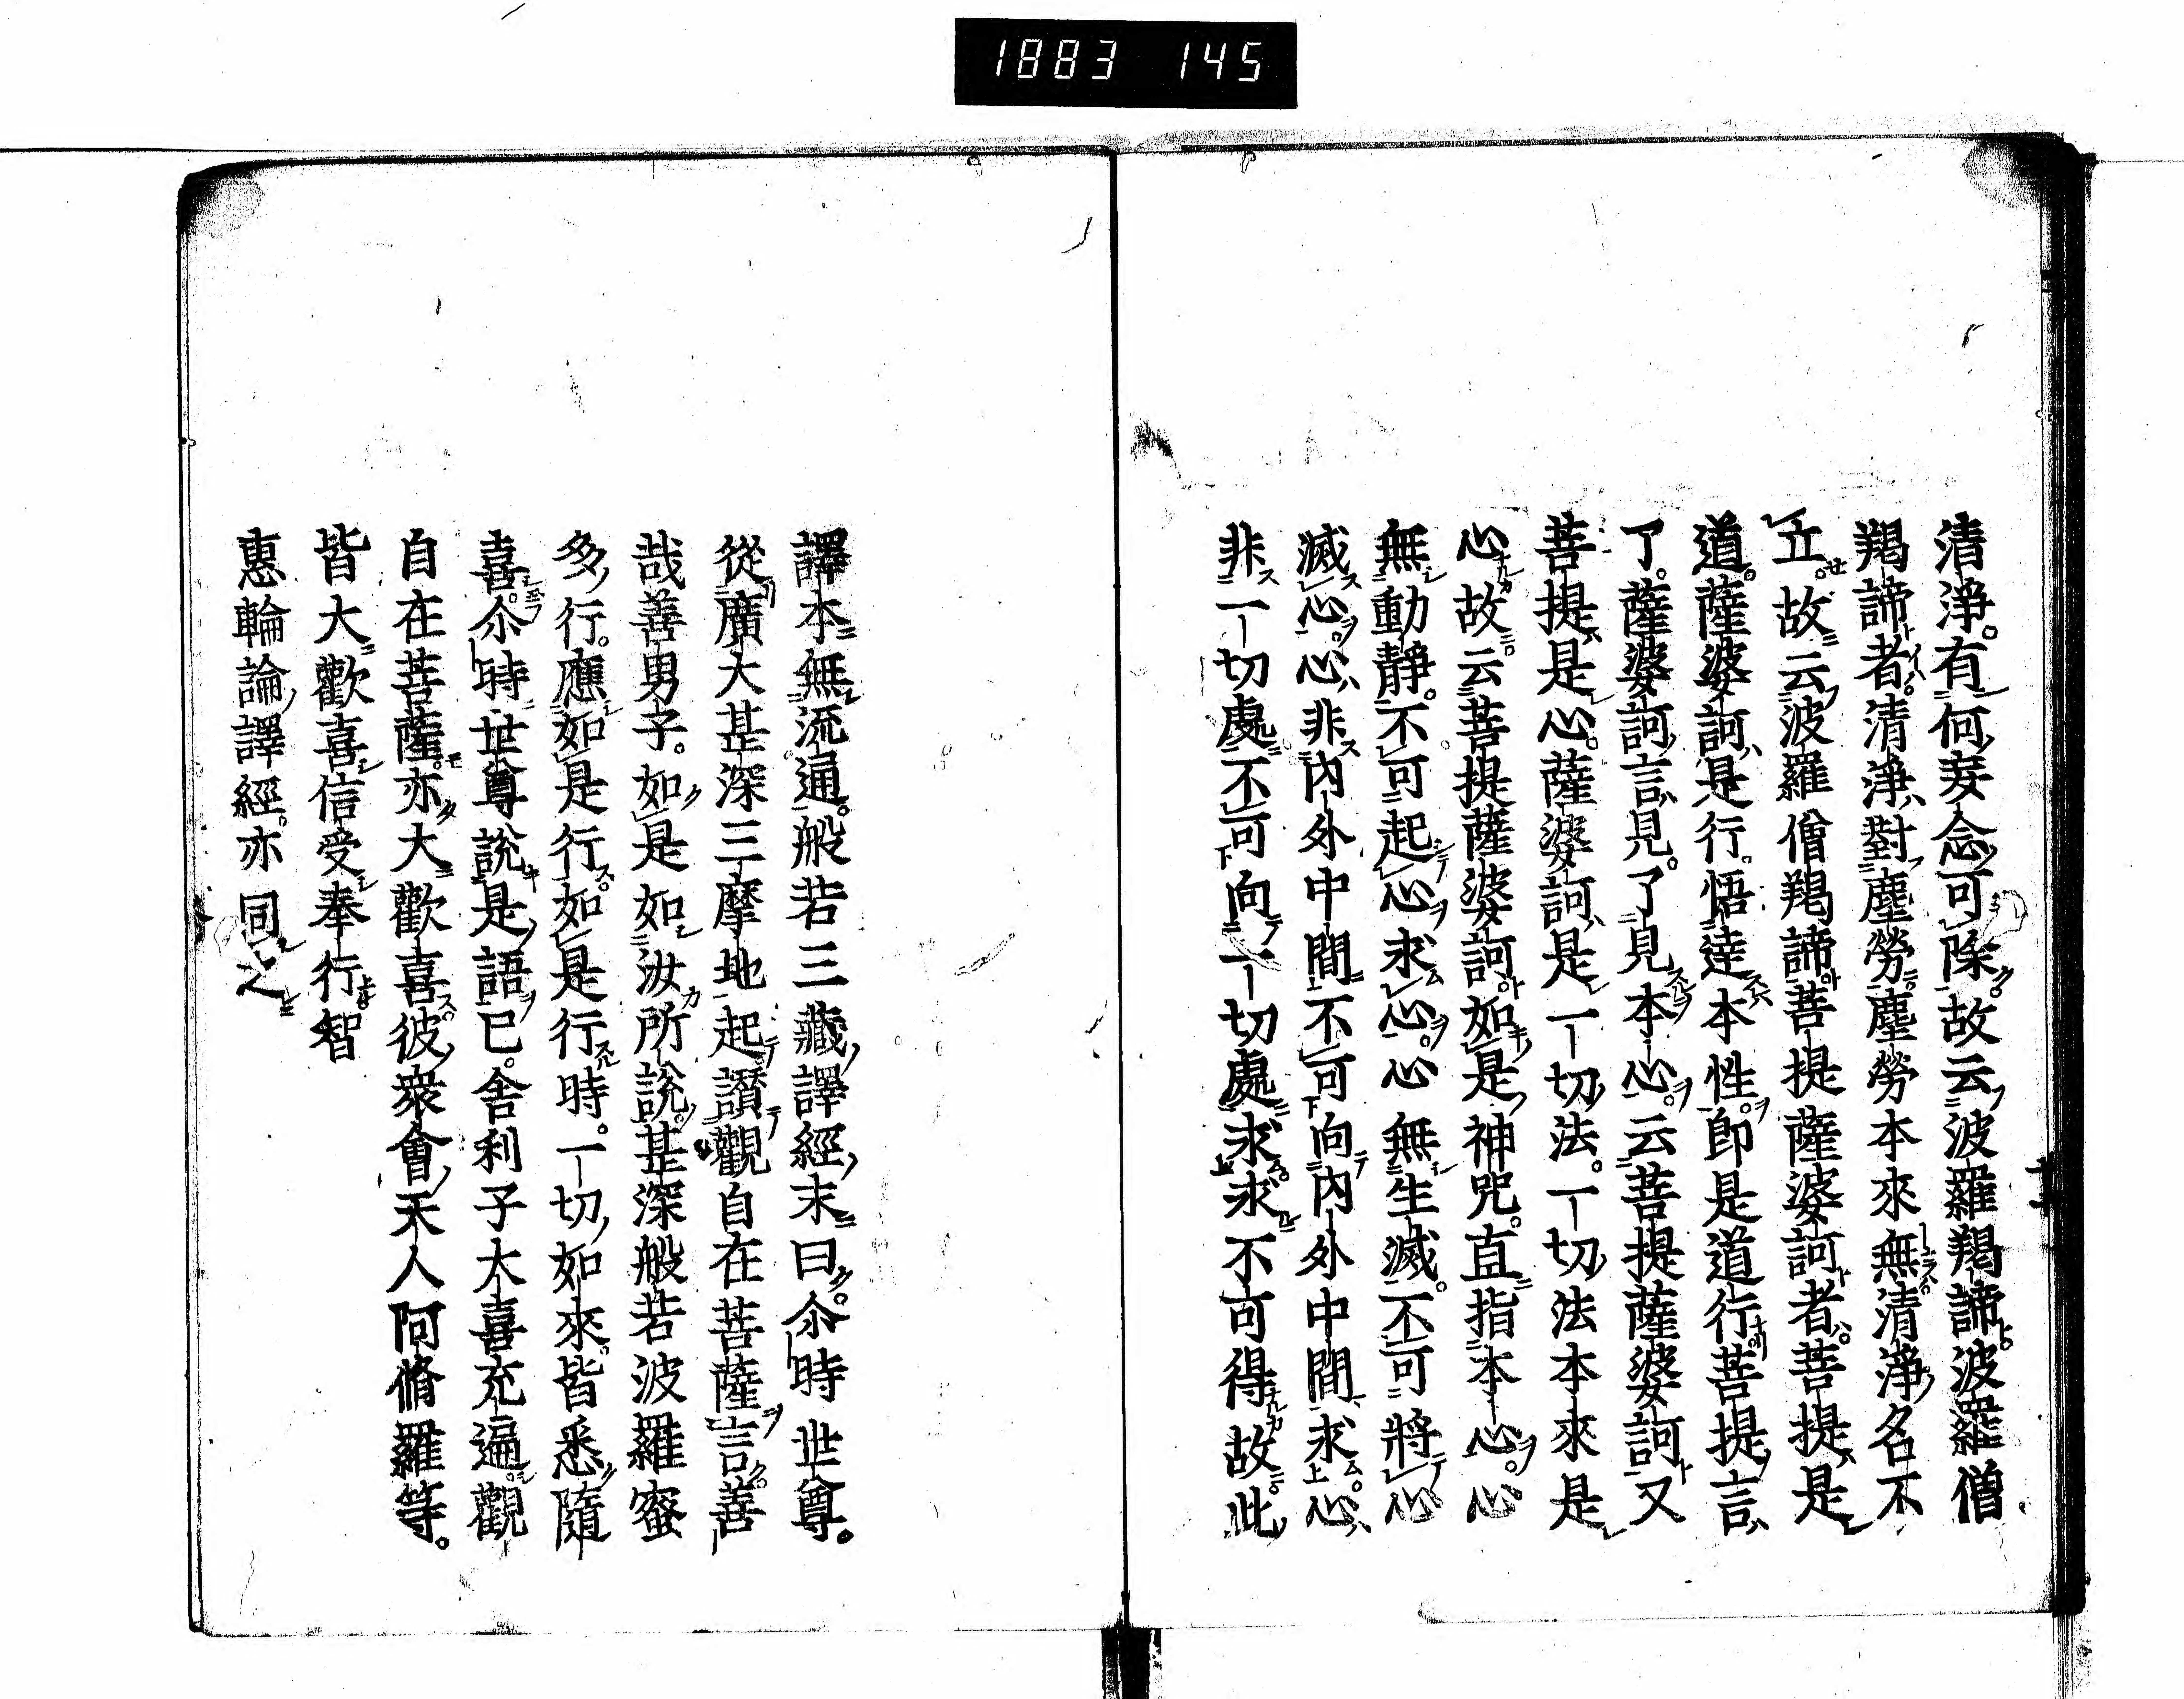 1883 145
清淨。有何妄念可除。故云波羅羯諦。波羅僧
羯諦者。清淨對塵勞。塵勞本來無清淨名不
立。故云波羅僧羯諦菩提薩婆訶者。菩提是
道。薩婆訶是行。悟達本性。即是道行菩提言
了。薩婆訶言見。了見本心。云菩提薩婆訶又
菩提是心。薩婆訶是一切法。一切法本來是
心故云菩提薩婆訶如是神咒。直指本心。心
無動靜。不可起心求心。心無生滅。不可將心
滅心。心非內外中間不可向內外中間求。心
非一切處。不可向一切處求。求不可得故。此
譯本無流通。般若三藏譯經末曰。尒時世尊。
從廣大甚深三摩地起讃觀自在菩薩言。善
哉善男子。如是如汝所說。甚深般若波羅蜜
多行。應如是行。如是行時。一切如來皆悉隨
喜。尒時世尊說是語已。舍利子大喜充遍。觀
自在菩薩。亦大歡喜。彼衆會天人阿脩羅等。
皆大歡喜信受奉行。智
惠輪論譯經。亦同之